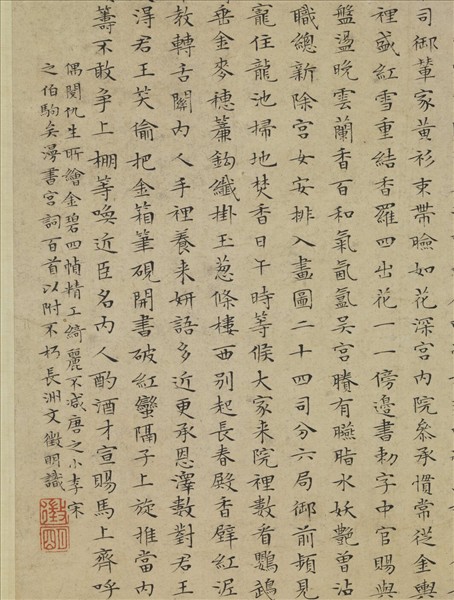 司御輦家黃衫束帶臉如花深宮內院叅承慣常從金輿
裡盛紅雪重結香羅四出花一一傍邊書勅字中官賜與
盤盪晚雲蘭香百和氣氤氳吳宮賸有臙脂水妖艷曾沾
職總新除宮女安排入畫圖二十四司分六局御前頻見
寵住龍池掃地焚香日午時等候大家来院裡數看鸚鵡
垂金麥穗簾鈎纖掛玉葱條樓西別起長春殿香壁紅泥
教轉舌關內人手裡養来妍語多近更承恩澤數對君王
得君王笑偷把金箱筆硯開書破紅蠻隔子上旋推當內
籌不敢争上棚等喚近臣名內人酌酒才宣賜馬上齊呼
偶閱仇生所繪金碧四幀精工綺麗不减唐之小李宋
之伯駒矣漫書宮詞百首以附不朽長洲文徵明識
徵明